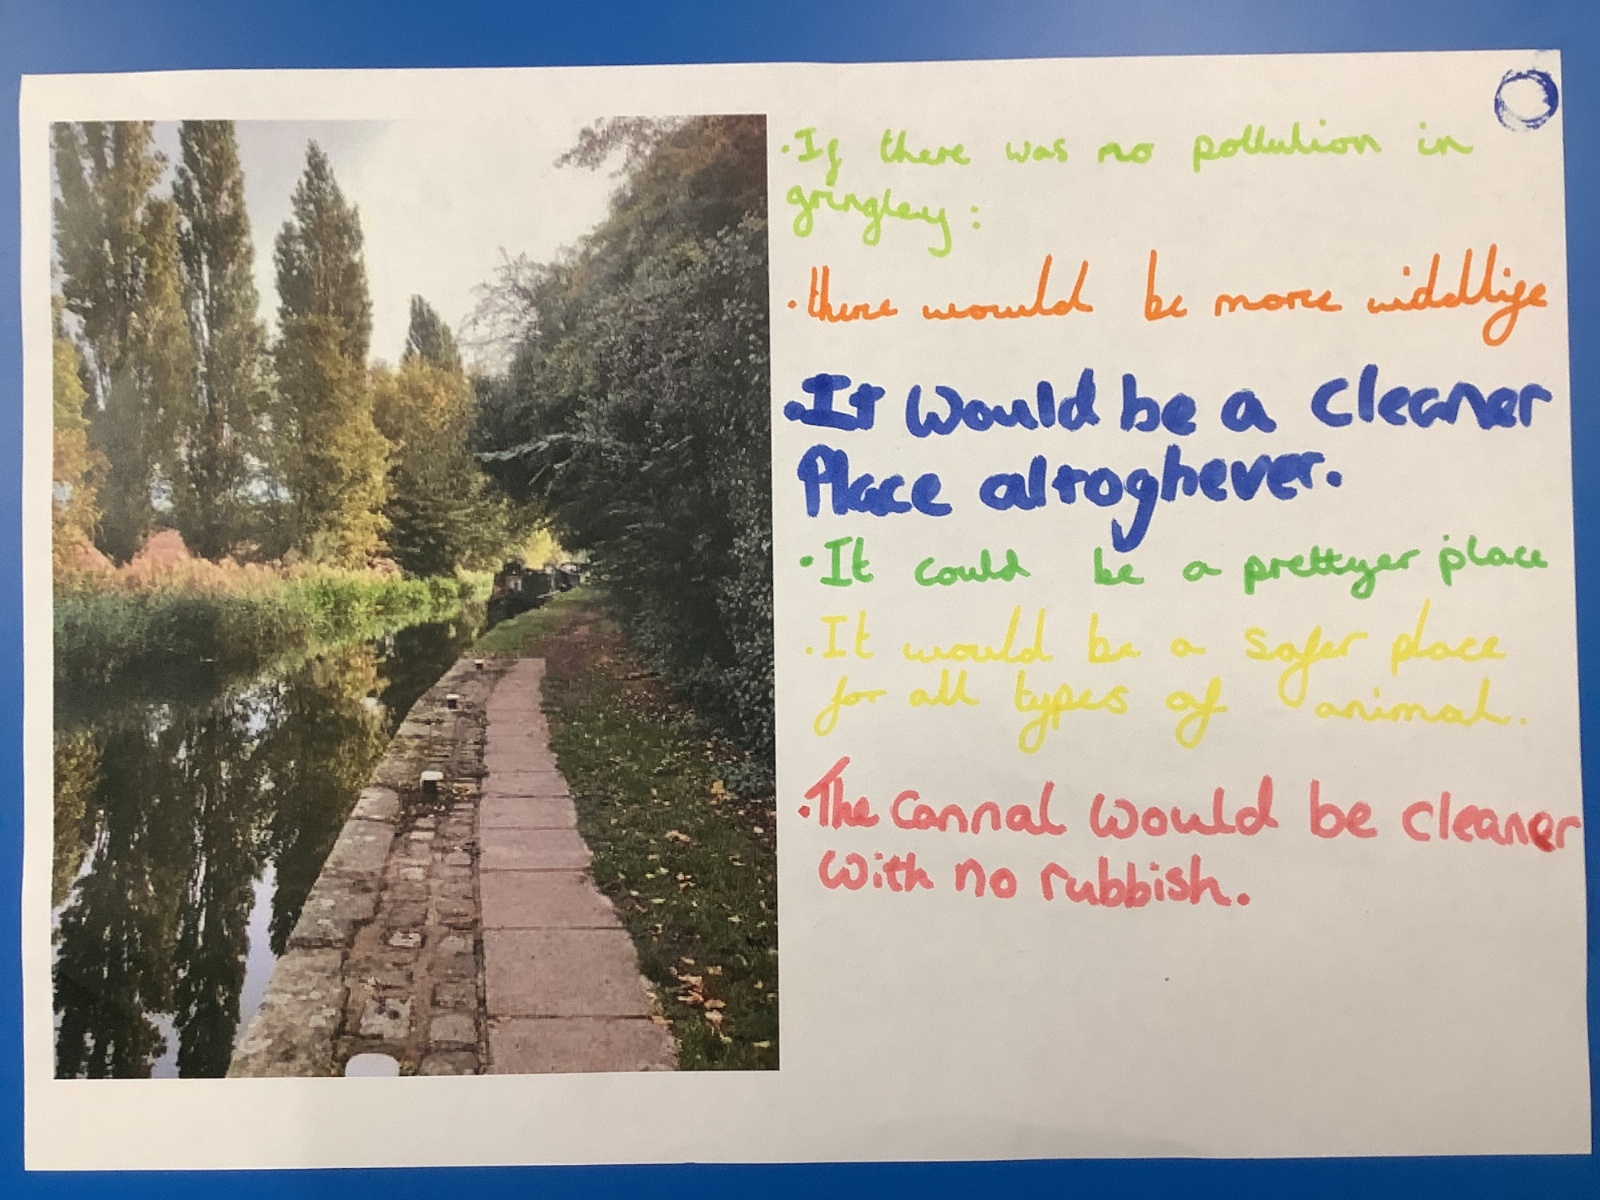 ·If there was no pollution in
gringley:
·there would be more widdlife
·It would be a cleaner
Place altroghever.
·It could be a prettyer place
·It would be a safer place
for all types of animal.
·The cannal would be cleaner
with no rubbish.